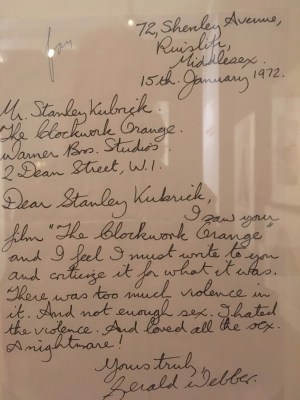 72, Shenley Avenue,
Ruislip,
Middlesex.
15th. January 1972.
Mr. Stanley Kubrick.
The Clockwork Orange.
Warner Bros. Studios.
2 Dean Street, W.1.
Dear Stanley Kubrick,
I saw your
film "The Clockwork Orange"
and I feel I must write to you
and criticize it for what it was.
There was too much violence in
it. And not enough sex. I hated
the violence. And loved all the sex.
A nightmare!
Yours truly,
Gerald Webber.